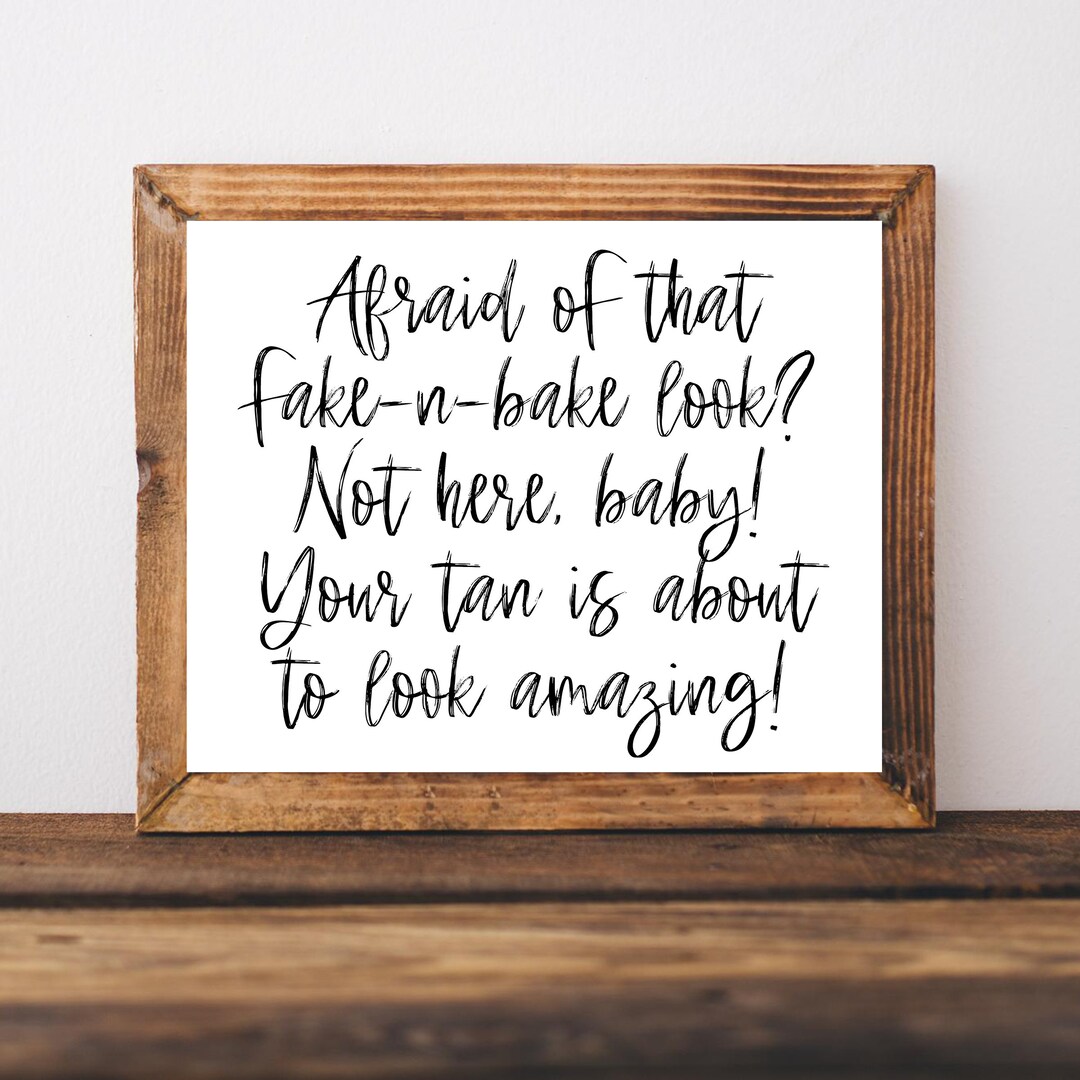 Afraid of that
fake-n-bake look?
Not here, baby!
Your tan is about
to look amazing!